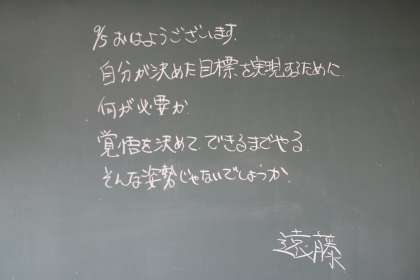 9/5 おはようございます.
自分が決めた目標を実現するために
何が必要か.
覚悟を決めて できるまでやる.
そんな姿勢じゃないでしょうか.
遠藤